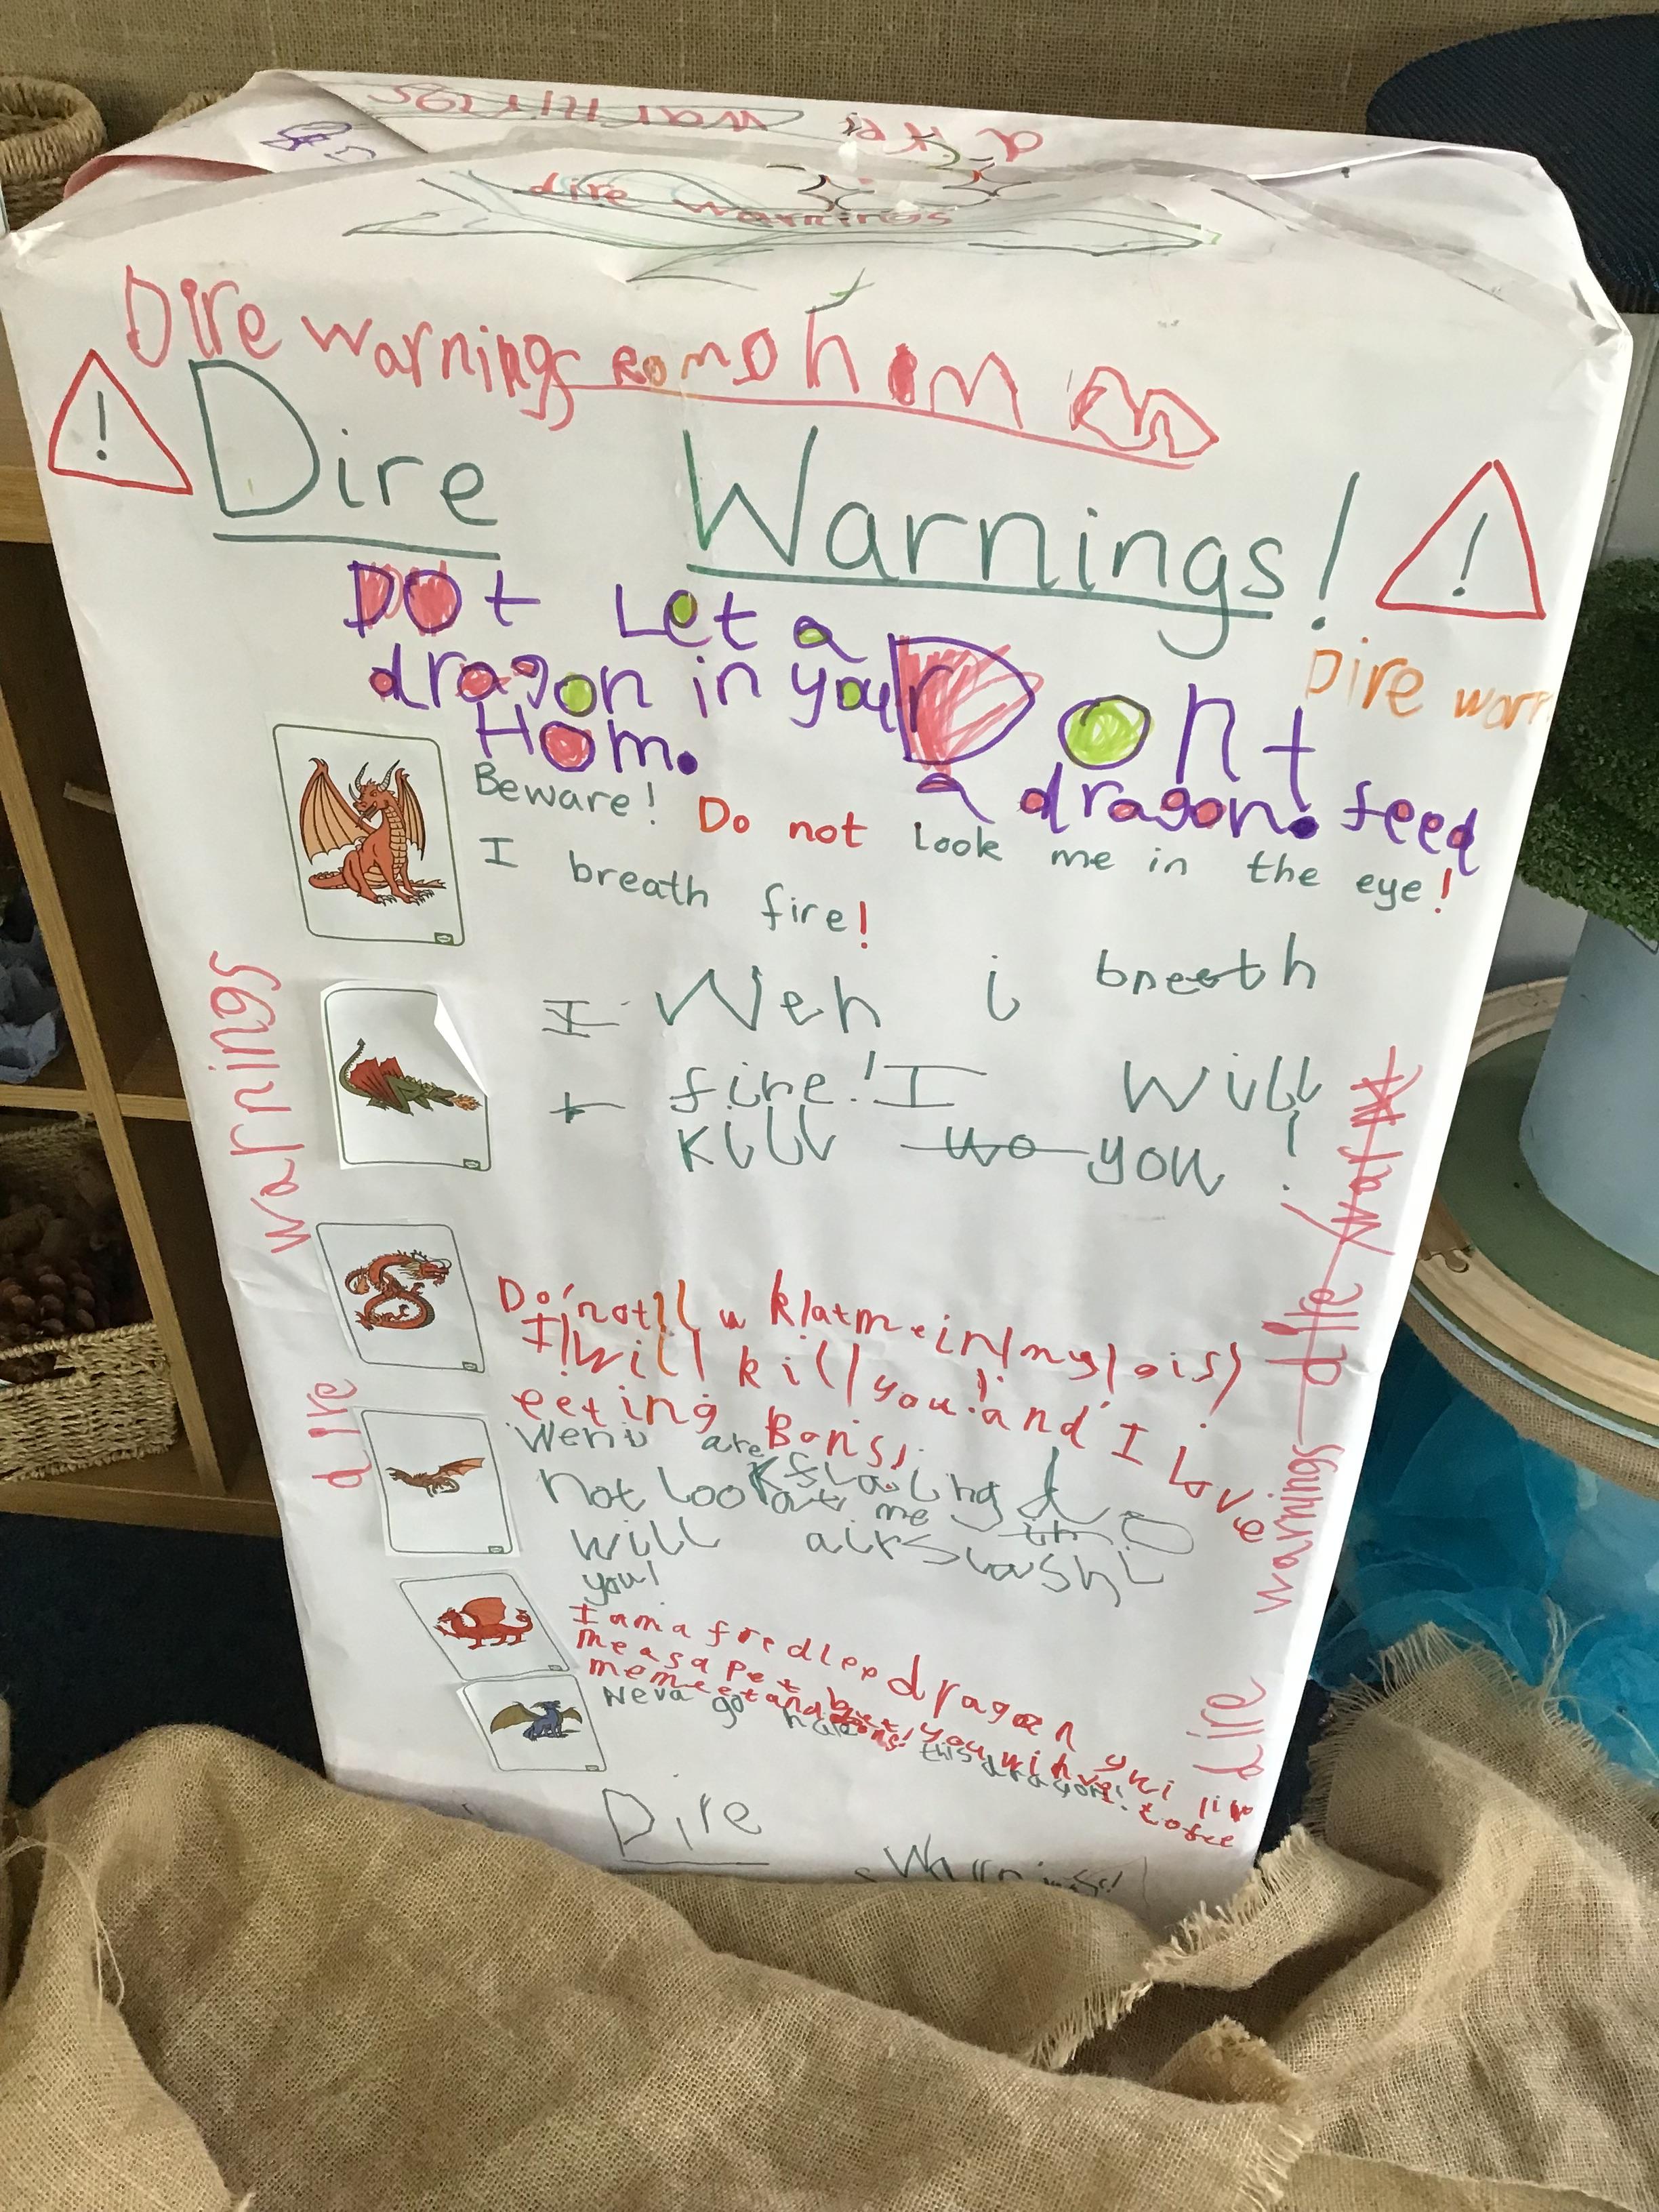 dire warnings
dire warnings
Dire warnings
Dire Warnings!
!
!
Dot Let a
dragon in your
Hom.
Dire warn
Dont
feed
a dragon.
Beware! Do not look me in the eye!
I breath fire!
I Weh i breeth
fire! I will
kill you!
warnings
dire
Do not
me in my
I will kill you! and I Love
eeting Bons!
Wen i are flaing do
not look at me
will airslash
you!
I am a
dragon
me as a Pet but you
me meet and bons!
Neva go this dragon!
dire
warnings
dire
Dire
Warnings!